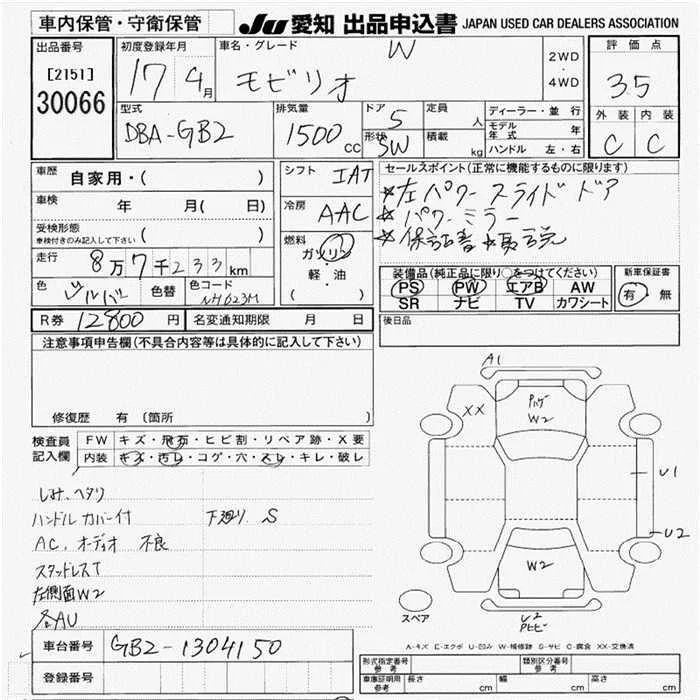 車内保管・守衛保管
JU 愛知 出品申込書 JAPAN USED CAR DEALERS ASSOCIATION
出品番号
[2151]
30066
初度登録年月
17 9月
車名・グレード
W
モビリオ
2WD
・
4WD
評価点
3.5
外装 内装
C C
型式
DBA-GB2
排気量
1500cc
ドア 5
形状 SW
定員 人
積載 kg
ディーラー・並行
モデル年式 年
ハンドル 左・右
車歴 自家用・( )
車検 年 月( 日)
受検形態
車検付きのみ記入して下さい ( )
走行 8万7千233km
色 シルバー 色替 色コード NH623M
シフト IAT
冷房 AAC
燃料
ガソリン
軽・油
( )
セールスポイント(正常に機能するものに限ります)
☆左パワースライドドア
☆パワーミラー
☆保証書 ☆取説
装備品(純正品に限り○をつけてください)
PS PW エアB AW
SR ナビ TV カワシート
新車保証書
有・無
R券 12800円 名変通知期限 月 日
後日品
注意事項申告欄(不具合内容等は具体的に記入して下さい)
修復歴 有 (箇所
検査員記入欄
FW キズ・飛石・ヒビ割・リペア跡・X要
内装 キズ・汚レ・コゲ・穴・スレ・キレ・破レ
しみ、ヘタリ
ハンドルカバー付 下廻り S
AC、オーディオ 不良
スタッドレスT
左側面W2
各AU
A1
XX
W2
U1
U2
W2
U2
スペア
A-キズ E-エクボ U-凹み W-補修跡 S-サビ C-腐食 XX-交換済
車台番号 GB2-1304150
登録番号
形式指定番号 参考
類別区分番号 参考
車庫証明用 参考 長さ cm 幅 cm 高さ cm